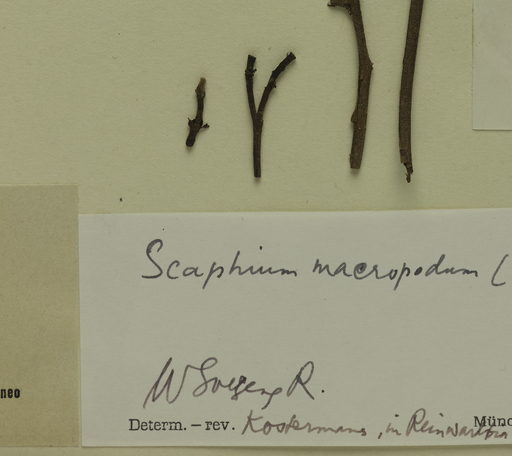 Scaphium macropodum (
neo
R.
Determ. – rev. Kostermans, in Reinwardtia Münc